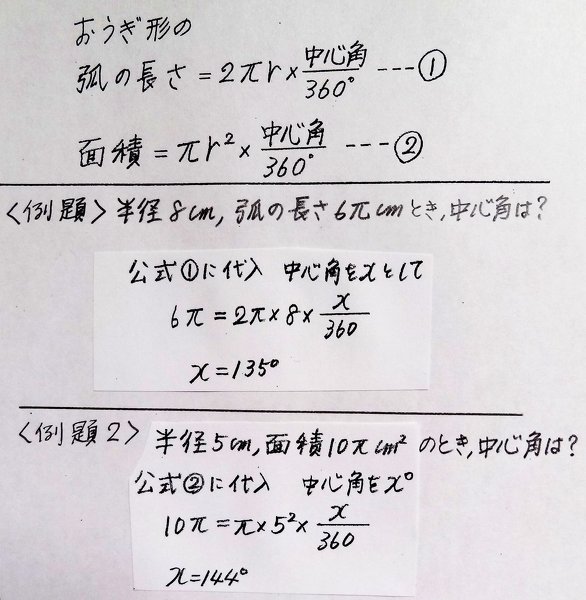 おうぎ形の
弧の長さ = 2πr × 中心角/360° ---①
面積 = πr² × 中心角/360° ---②
〈例題〉半径8cm, 弧の長さ6πcmとき,中心角は?
公式①に代入 中心角をxとして
6π = 2π×8× x/360
x = 135°
〈例題2〉半径5cm, 面積10πcm²のとき,中心角は?
公式②に代入 中心角をx°
10π = π×5²× x/360
x = 144°